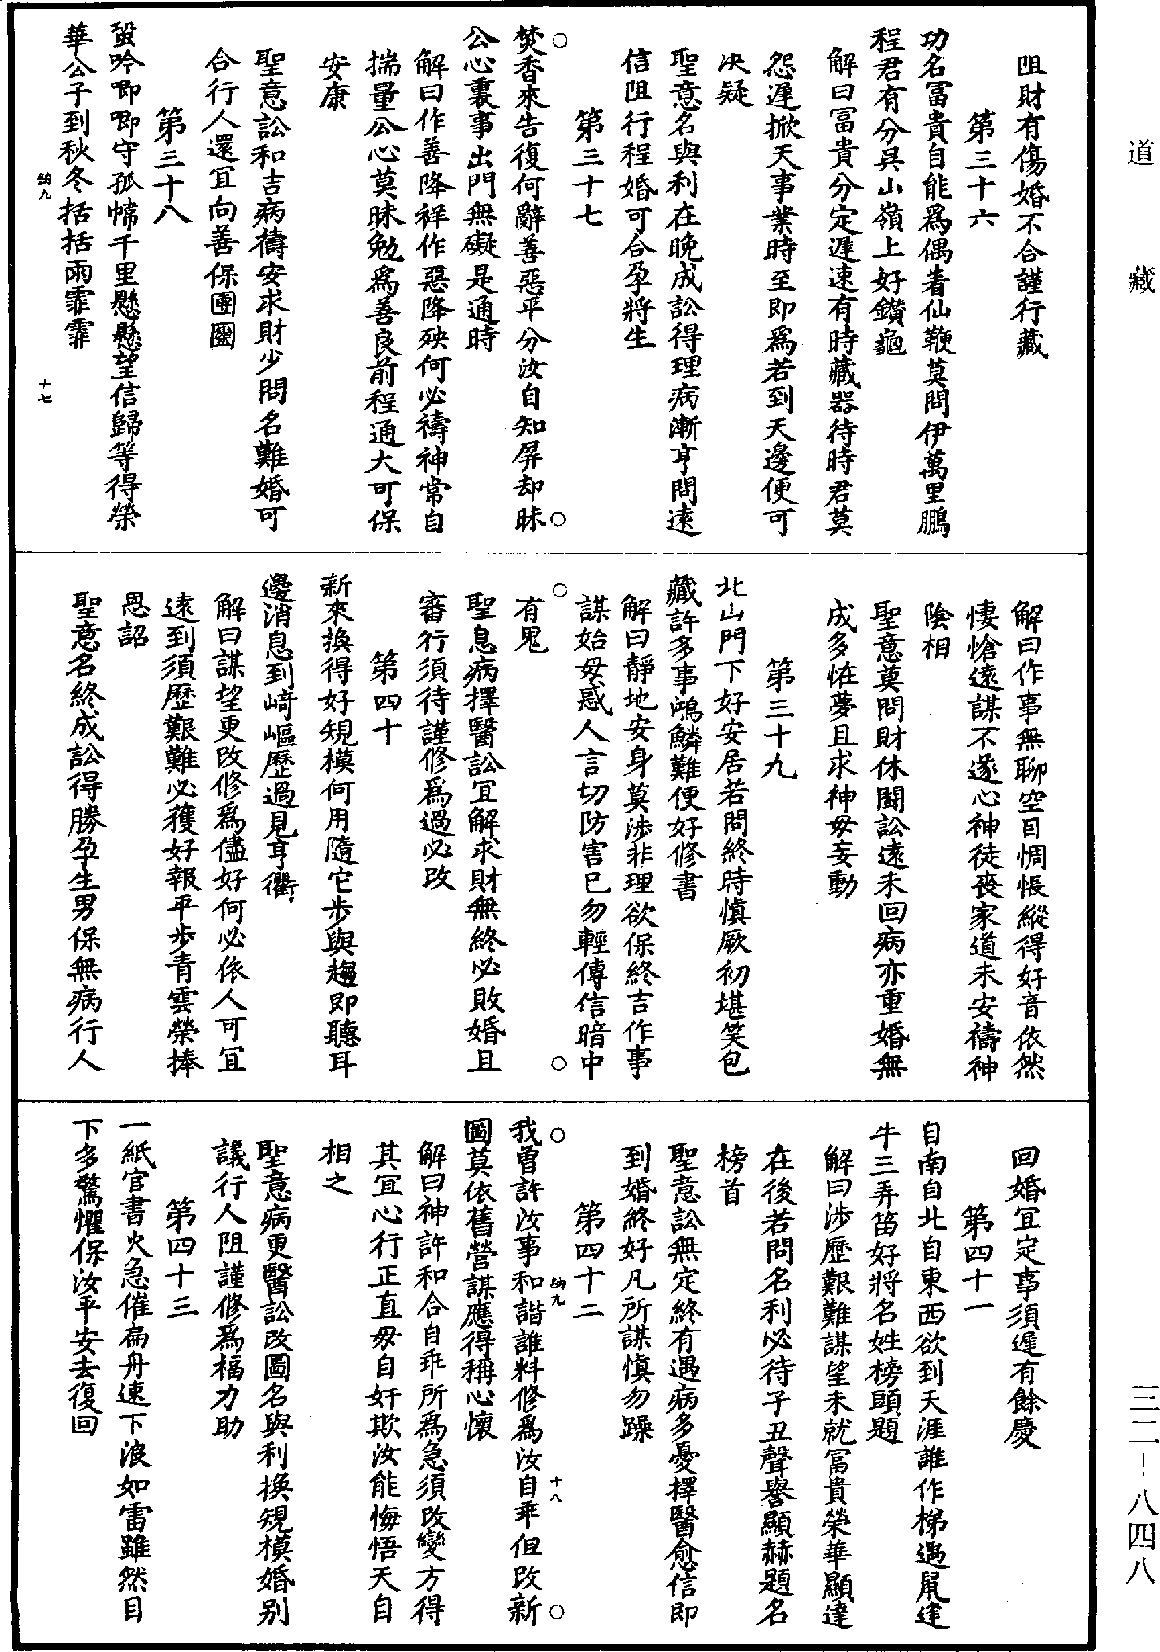 道藏
阻財有傷婚不合謹行藏
第三十六
功名富貴自能為偶着仙鞭莫問伊萬里鵬
程君有分具山嶺上好鑽龜
解曰富貴分定遲速有時藏器待時君莫
怨遲掀天事業時至即為若到天邊便可
決疑
聖意名與利在晚成訟得理病漸亨問遠
信阻行程婚可合孕將生
第三十七
焚香來告復何辭善惡平分汝自知屏却昧
公心裏事出門無礙是通時
解曰作善降祥作惡降殃何必禱神常自
揣量公心莫昧勉為善良前程通大可保
安康
聖意訟和吉病禱安求財少問名難婚可
合行人還宜向善保團圓
第三十八
蛩吟唧唧守孤幃千里懸懸望信歸等得榮
華公子到秋冬括括雨霏霏
納九
十七
解曰作事無聊空自惆悵縱得好音依然
悽愴遠謀不遂心神徒喪家道未安禱神
陰相
聖意莫問財休鬭訟遠未回病亦重婚無
成多怪夢且求神毋妄動
第三十九
北山門下好安居若問終時慎厥初堪笑包
藏許多事鴻鱗難便好修書
解曰靜地安身莫涉非理欲保終吉作事
謀始毋惑人言切防害己勿輕傳信暗中
有鬼
聖息病擇醫訟宜解求財無終必敗婚且
審行須待謹修為過必改
第四十
新來換得好規模何用隨它步與趨即聽耳
邊消息到崎嶇歷過見亨衢
解曰謀望更改修為儘好何必依人可宜
遠到須歷艱難必獲好報平步青雲榮捧
恩詔
聖意名終成訟得勝孕生男保無病行人
回婚宜定事須遲有餘慶
第四十一
自南自北自東西欲到天涯誰作梯遇鼠逢
牛三弄笛好將名姓榜頭題
解曰涉歷艱難謀望未就富貴榮華顯達
在後若問名利必待子丑聲譽顯赫題名
榜首
聖意訟無定終有遇病多憂擇醫愈信即
到婚終好凡所謀慎勿躁
第四十二
納九
十八
我曾許汝事和諧誰料修為汝自乖但改新
圖莫依舊營謀應得稱心懷
解曰神許和合自乖所為急須改變方得
其宜心行正直毋自奸欺汝能悔悟天自
相之
聖意病更醫訟改圖名與利換規模婚别
議行人阻謹修為福力助
第四十三
一紙官書火急催扁舟速下浪如雷雖然目
下多驚懼保汝平安去復回
三二－八四八